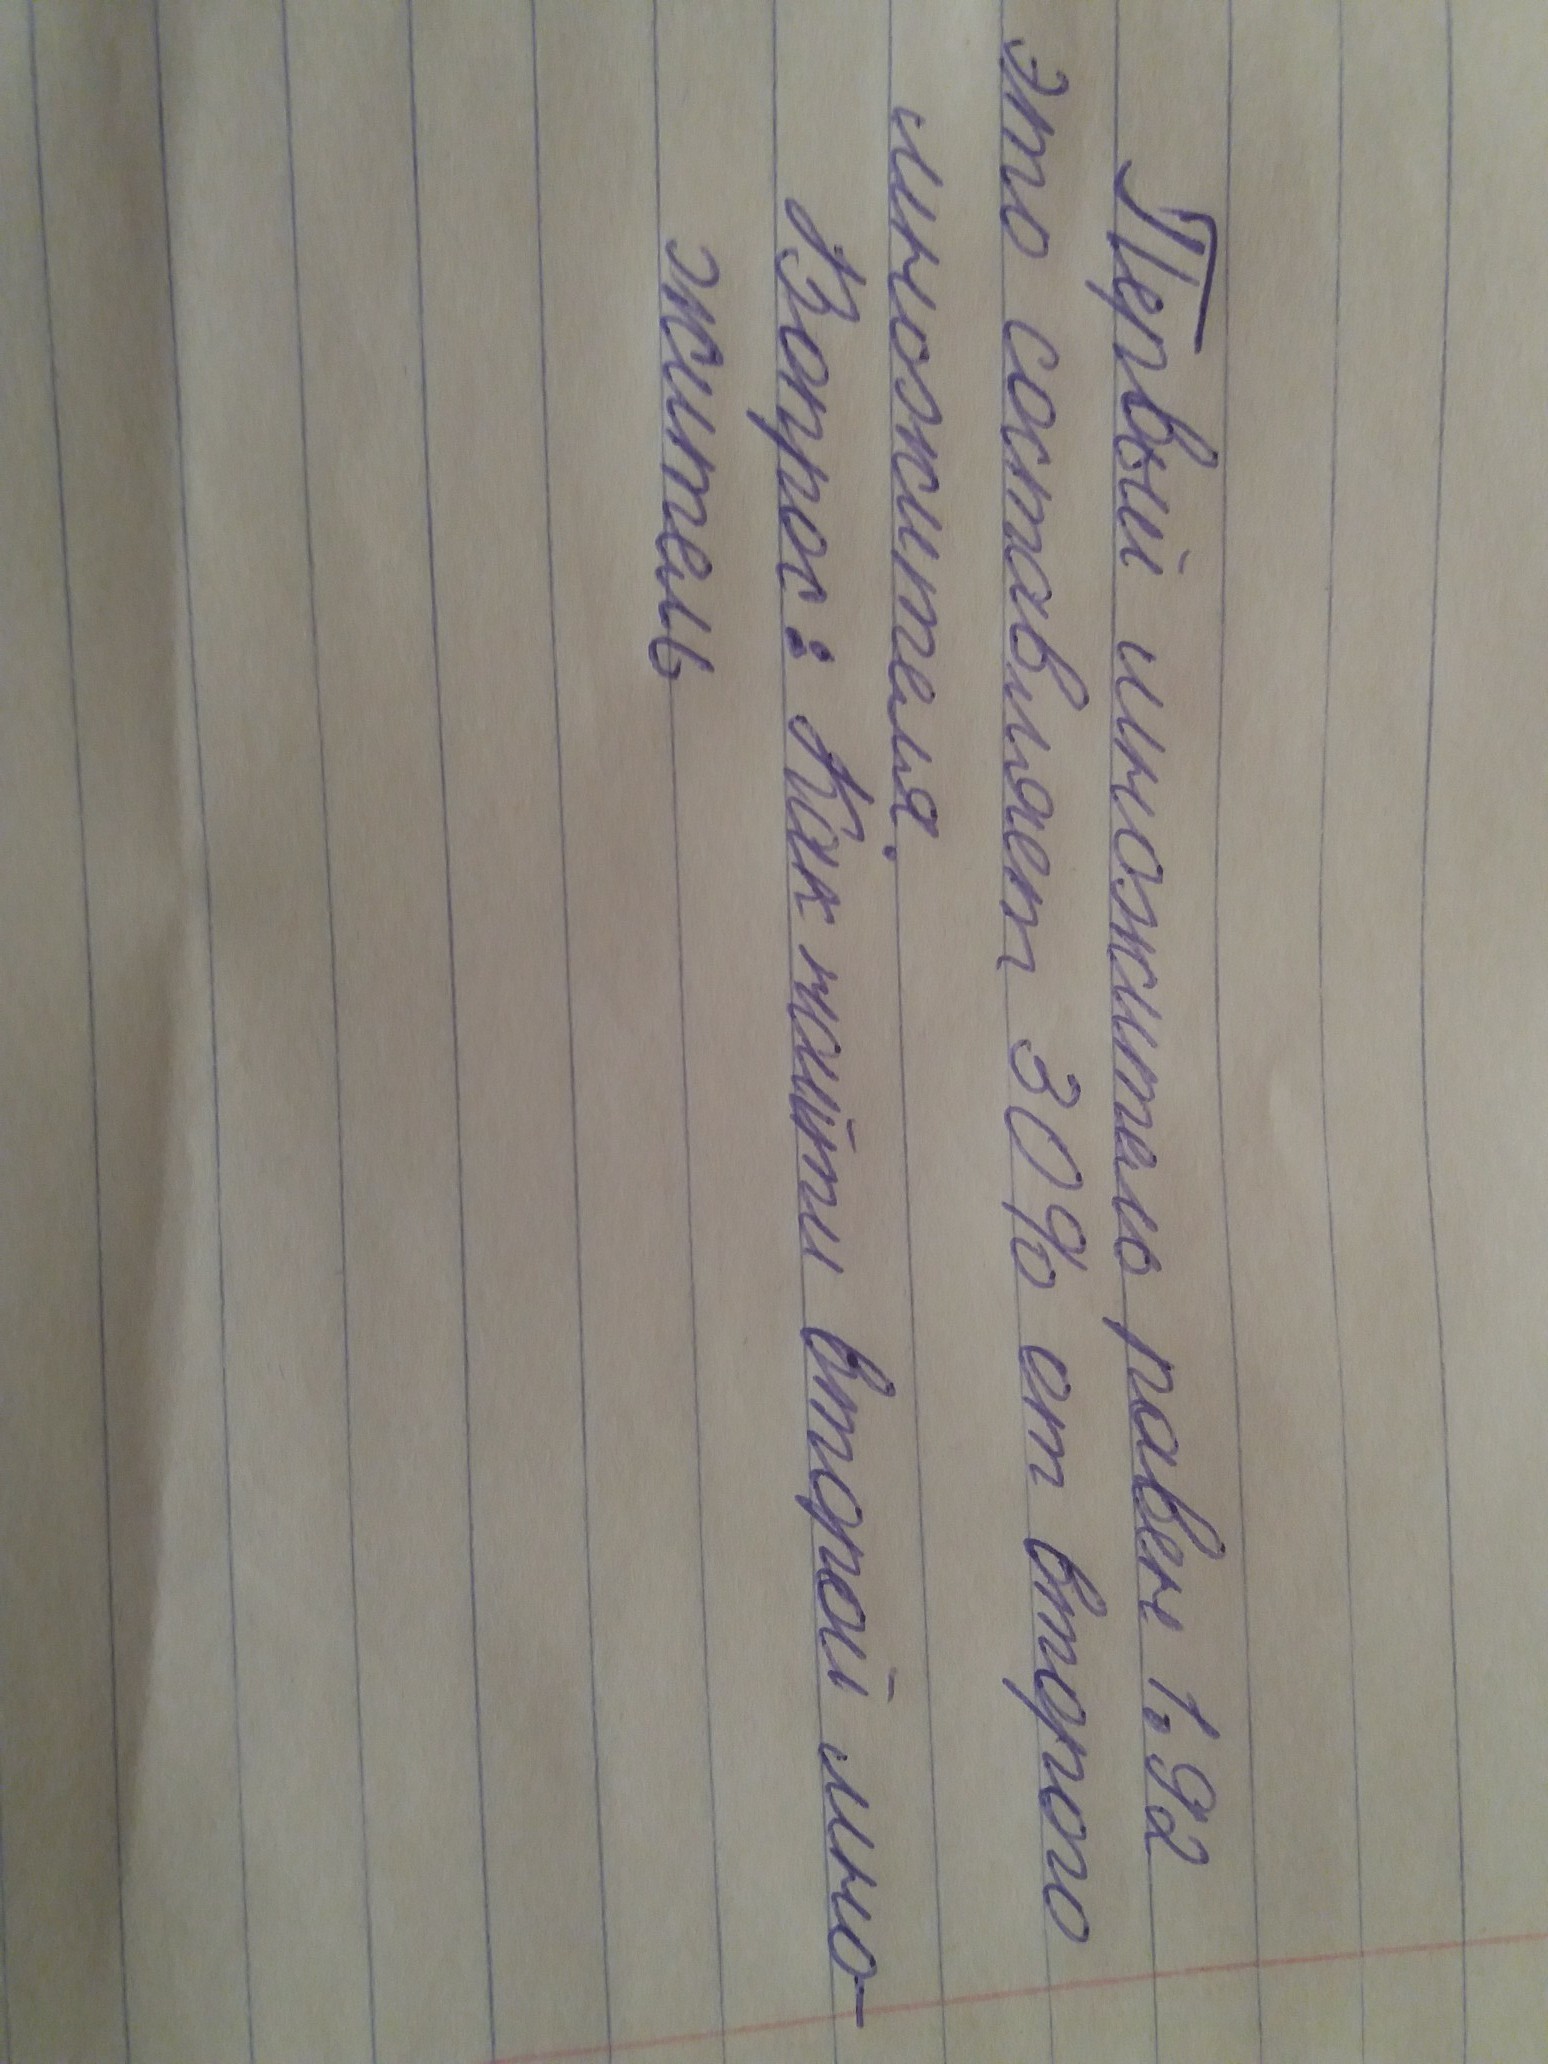 Первый множитель равен 1,92
это составляет 30% от второго
множителя.
Вопрос: Как найти второй мно-
житель